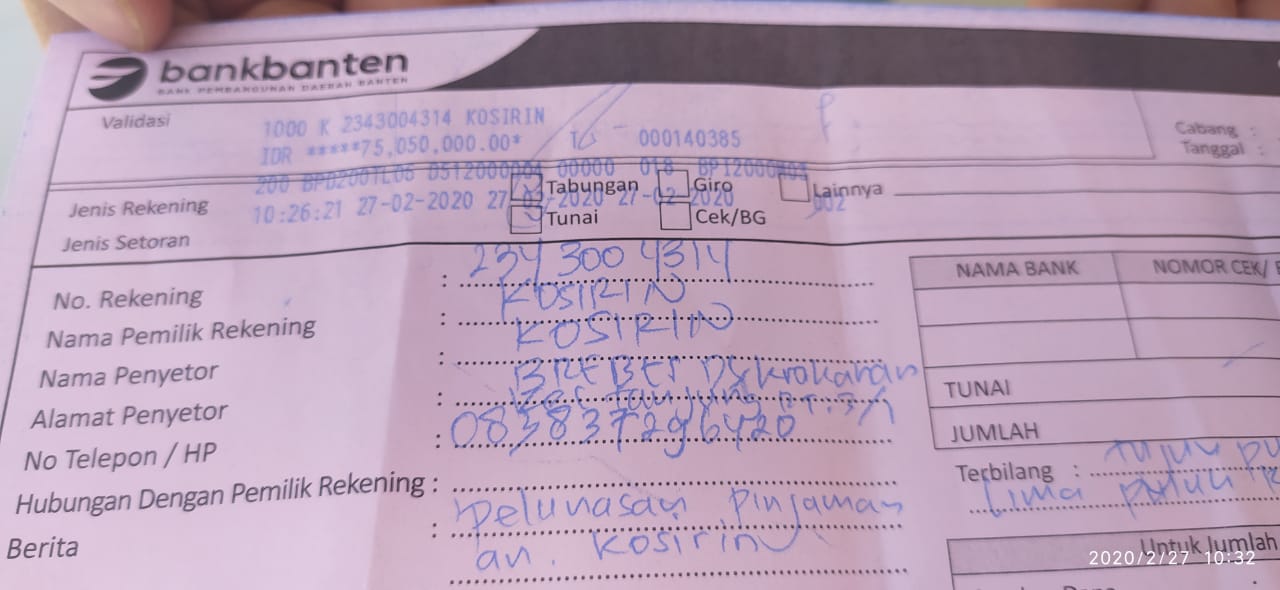 bankbanten
BANK PEMBANGUNAN DAERAH BANTEN
Validasi
1000 K 2343004314 KOSIRIN
IDR *****75,050,000.00* 000140385
200 BPD200TL06 D512000004 00000 018
10:26:21 27-02-2020 27-02-2020 27-02-2020 002
Cabang :
Tanggal :
Jenis Rekening Tabungan Giro Lainnya
Jenis Setoran Tunai Cek/BG
No. Rekening : 234 300 4314
Nama Pemilik Rekening : KOSIRIN
Nama Penyetor : KOSIRIN
Alamat Penyetor : BREBES Ds krakahan
kec tanjung RT:3/1
No Telepon / HP : 083837296420
Hubungan Dengan Pemilik Rekening :
Berita : pelunasan pinjaman
an. kosirin
NAMA BANK NOMOR CEK/
TUNAI
JUMLAH
Terbilang : tujuh pu
lima puluh
Untuk Jumlah
2020/2/27 10:32